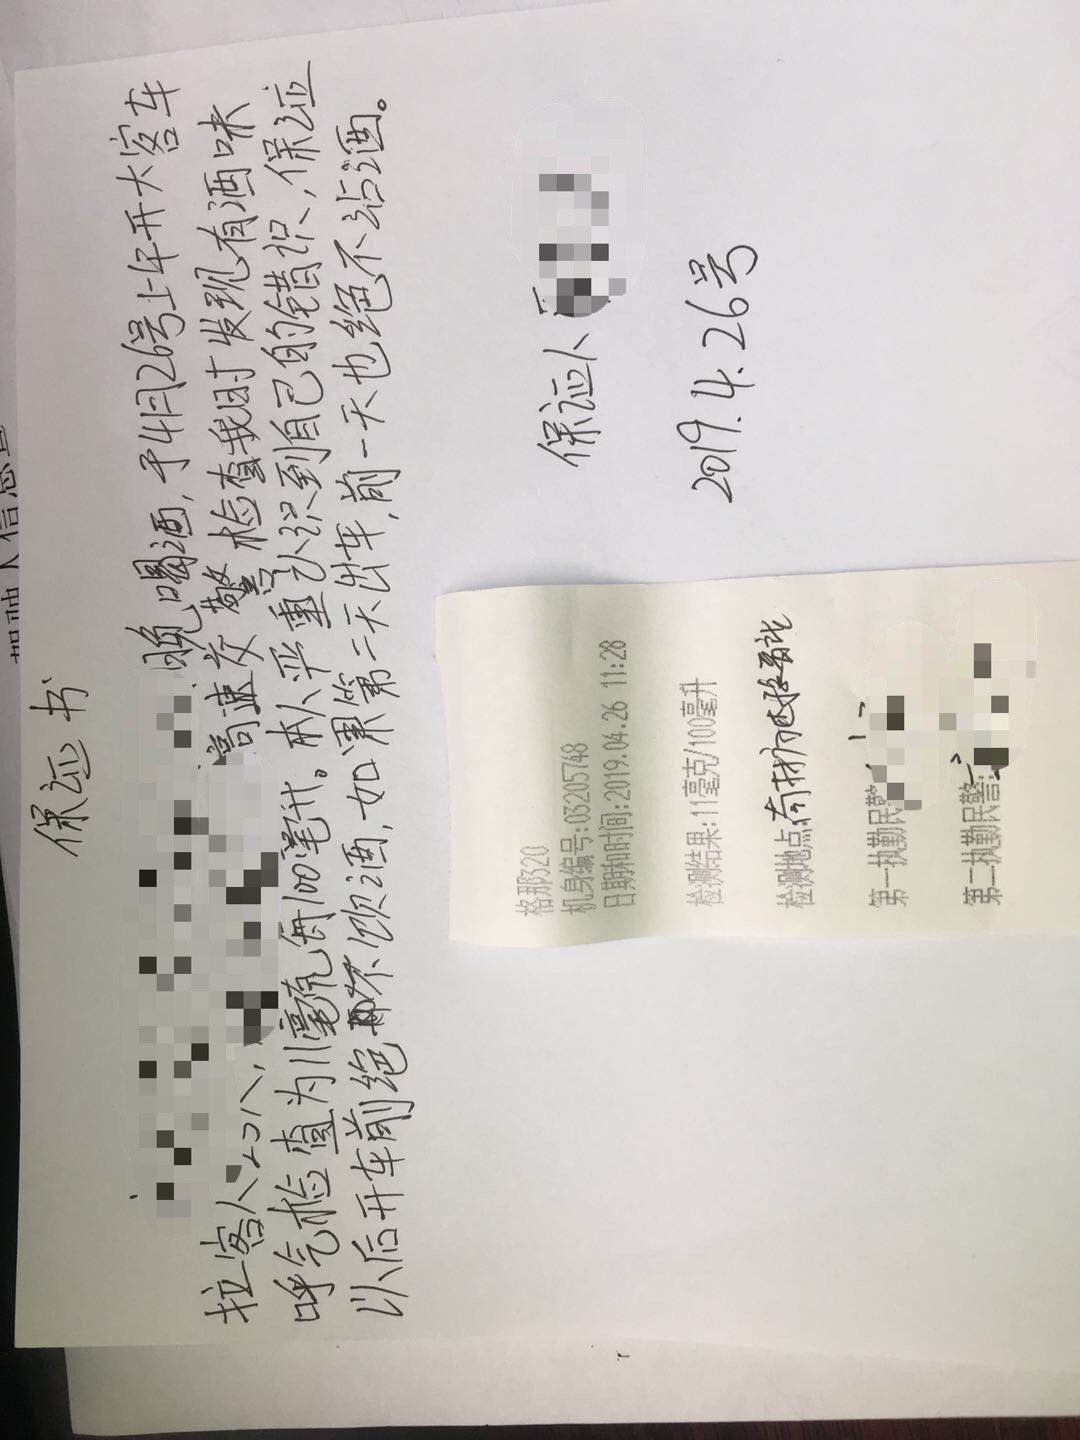 保证书
晚喝酒,于4月26号上午开大客车
拉客人20人, 高速交警检查我时发现有酒味
呼气检查为11毫克每100毫升。本人严重认识到自己的错识,保证
以后开车前绝不饮酒,如果第二天出车,前一天也绝不沾酒。
保证人
2019.4.26号
格那320
机身编号:03205748
日期和时间:2019.04.26 11:28
检测结果:11毫克/100毫升
检测地点
第一执勤民警:
第二执勤民警:
驾驶人信息